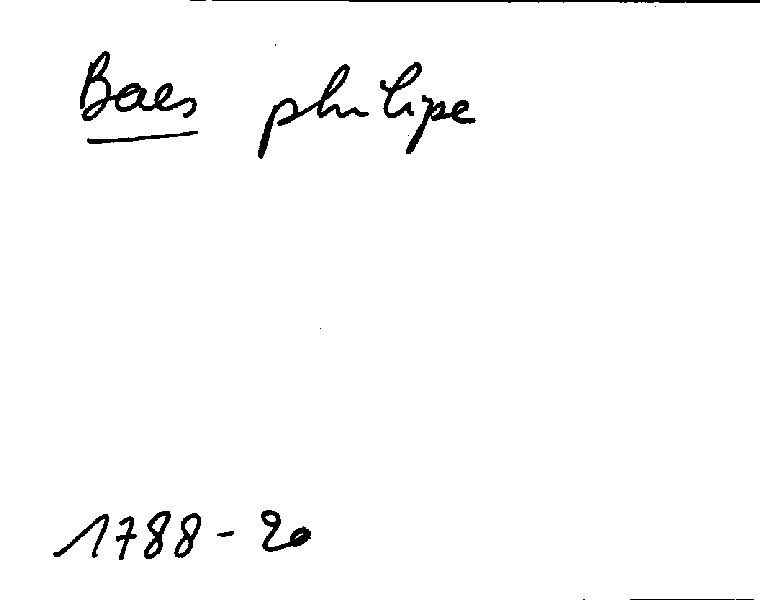 Baes philipe
1788 - 20